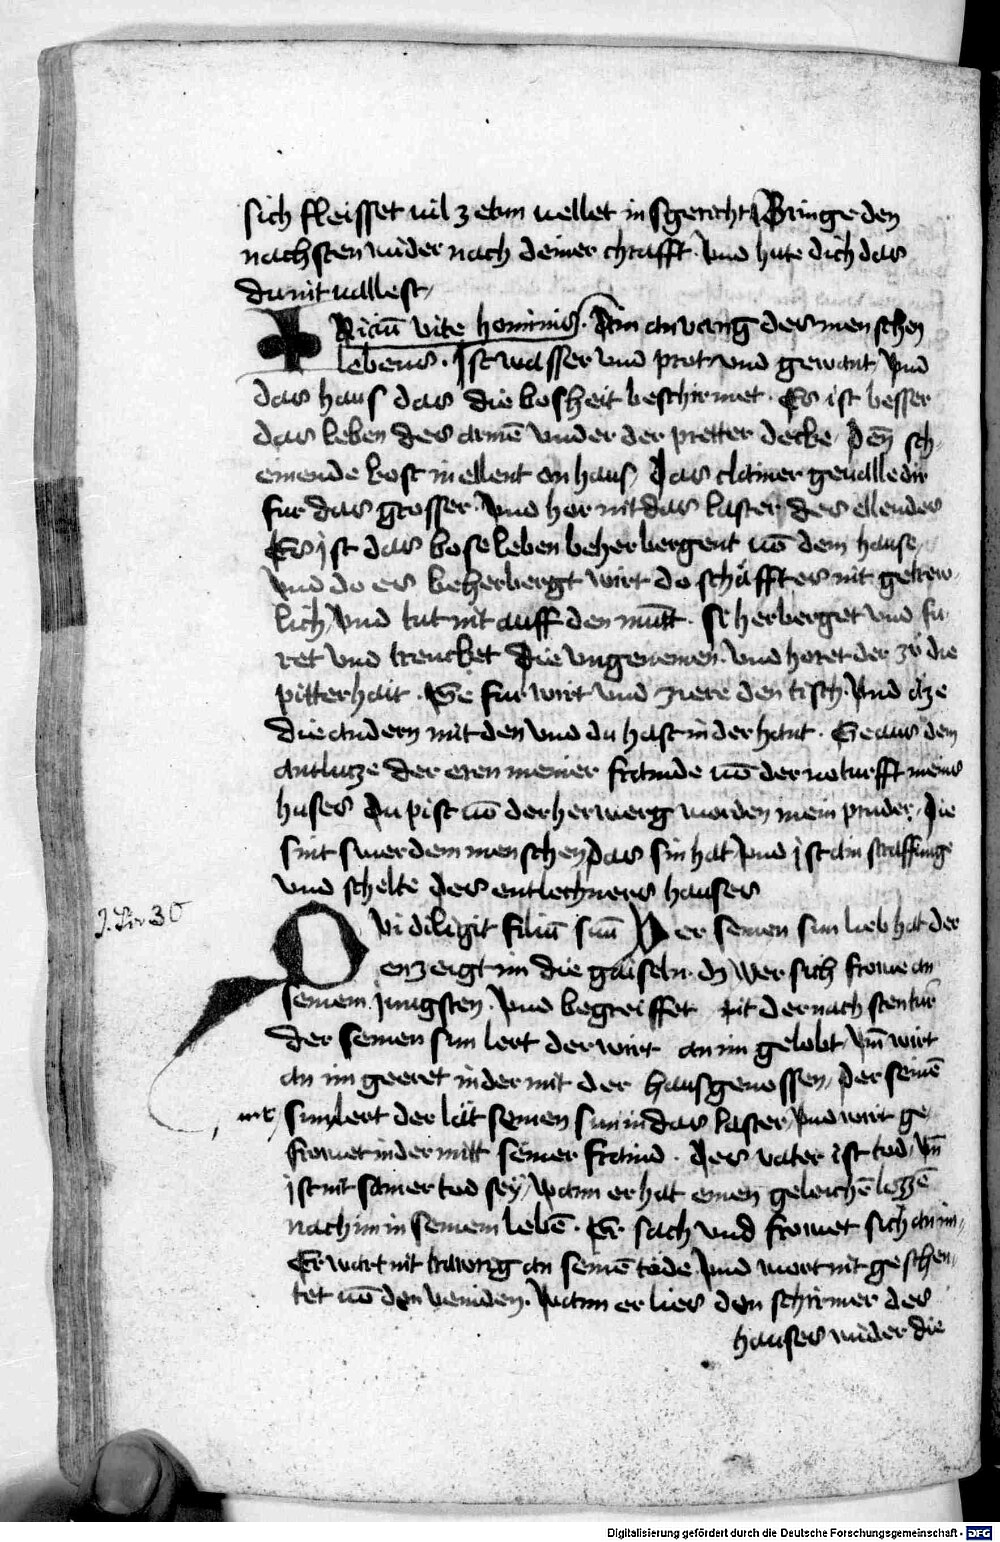 sich fleisset vil zetun vellet in sgericht Bringe den
nachsten wider nach deiner chrafft. Vnd hute dich das
du nit vallest
Niciū vite hominis. Ain anvang des menschen
lebens. Ist wasser vnd prot vnd gewant vnd
das haus das die bosheit beschirmet. Es ist besser
das leben des armē vnder der pretter decke. Den̄ sch-
einende kost in ellent on haus, Das clainer geualle dir
fur das grosser. Vnd hor nit das laster des ellendes
Es ist das bose leben beherbergent vō dem hause
vnd do er beherbergt wirt do schafft er nit getrew-
lich, vnd tut nit auff den mūt. Er herberget vnd fu-
ret vnd trencket die vngenemen. vnd horet der zu die
pitterhait. Ge fur wirt vnd ziere den tisch. Vnd aze
die andern mit den vnd du hast in der hant. Ge aus dem
antlutze der eren meiner frainde vō der noturfft meins
huses Du pist vō der herwerg worden mein pruder. Die
sint swer dem menschen das sin hat, vnd ist ain straffunge
vnd schelte des entlechners hauses
J. Sir 30
Qvi diligit filiū suū Wer seinen sun lieb hat der
erzeigt im die gaiseln. dz er sich frowe an
seinem jungsten. Vnd begreiffet nit der nachsten tur̄
der seinen sun lert der wirt an im gelobt, vn̄ wirt
an im geeret in der mit der hausgenossen, Der seinē
sun lert der lat seinen sun in das laster, vnd wirt ge-
frowet in der mitt seiner fraind. Der vater ist tod, vn̄
ist nit samer tod sey, wann er hat einen geleichē lazzē
nach im in seinem lebē. Er sach vnd frowet sich an im,
Er wart nit trawrig an seinē tode. vnd wart nit geschen-
tet vō den veinden. Wann er lies den schirmer des
hauses wider die